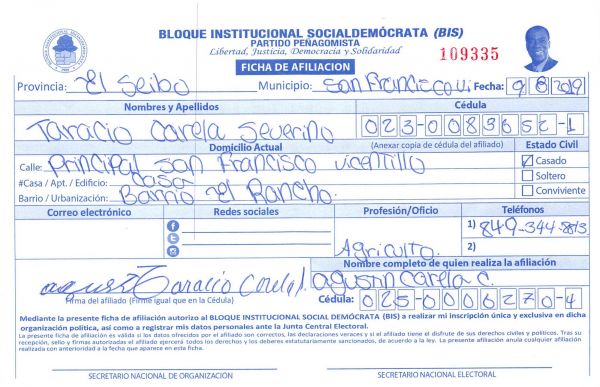 BLOQUE INSTITUCIONAL SOCIALDEMÓCRATA (BIS)
PARTIDO PEÑAGOMISTA
Libertad, Justicia, Democracia y Solidaridad
109335
FICHA DE AFILIACION
Provincia: El Seibo Municipio: San Francisco Vi Fecha: 9 8 2019
Nombres y Apellidos Cédula
Taracio Carela Severino 023-0083652-1
Domicilio Actual (Anexar copia de cédula del afiliado) Estado Civil
Calle: Principal San Francisco Vicentillo Casado
#Casa / Apt. / Edificio: Casa Soltero
Barrio / Urbanización: Barrio El Rancho. Conviviente
Correo electrónico Redes sociales Profesión/Oficio Teléfonos
1) 849-344-2813
Agriculto. 2)
Nombre completo de quien realiza la afiliación
Taracio Carela agusón Carela C.
Firma del afiliado (Firme igual que en la Cédula) Cédula: 025-0006270-4
Mediante la presente ficha de afiliación autorizo al BLOQUE INSTITUCIONAL SOCIAL DEMÓCRATA (BIS) a realizar mi inscripción única y exclusiva en dicha
organización política, así como a registrar mis datos personales ante la Junta Central Electoral.
La presente ficha de afiliación es válida si los datos ofrecidos por el afiliado son correctos, las declaraciones veraces y si el afiliado tiene el disfrute de sus derechos civiles y políticos. Tras su
recepción, sello y firmas autorizadas el afiliado ejercerá todos los derechos y los deberes estatutariamente sancionados, de acuerdo a la ley. La presente afiliación anula cualquier afiliación
realizada con anterioridad a la fecha que aparece en esta ficha.
SECRETARIO NACIONAL DE ORGANIZACIÓN SECRETARIO NACIONAL ELECTORAL